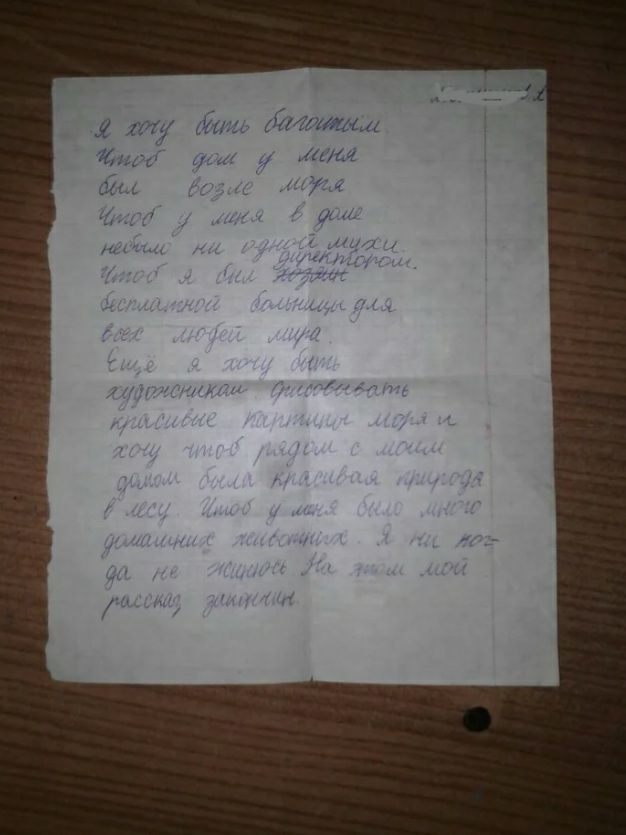 Я хочу быть багатым.
Чтоб дом у меня
был возле моря
Чтоб у меня в доме
небыло ни одной мухи.
директором.
Чтоб я был хозяин
бесплатной больницы для
всех людей мира.
Ещё я хочу быть
художником. срисовывать
красивые картины моря и
хочу чтоб рядом с моим
домом была красивая природа
в лесу. Чтоб у меня было много
домашних животных. Я ни ког-
да не жинюсь На этом мой
рассказ закончин.